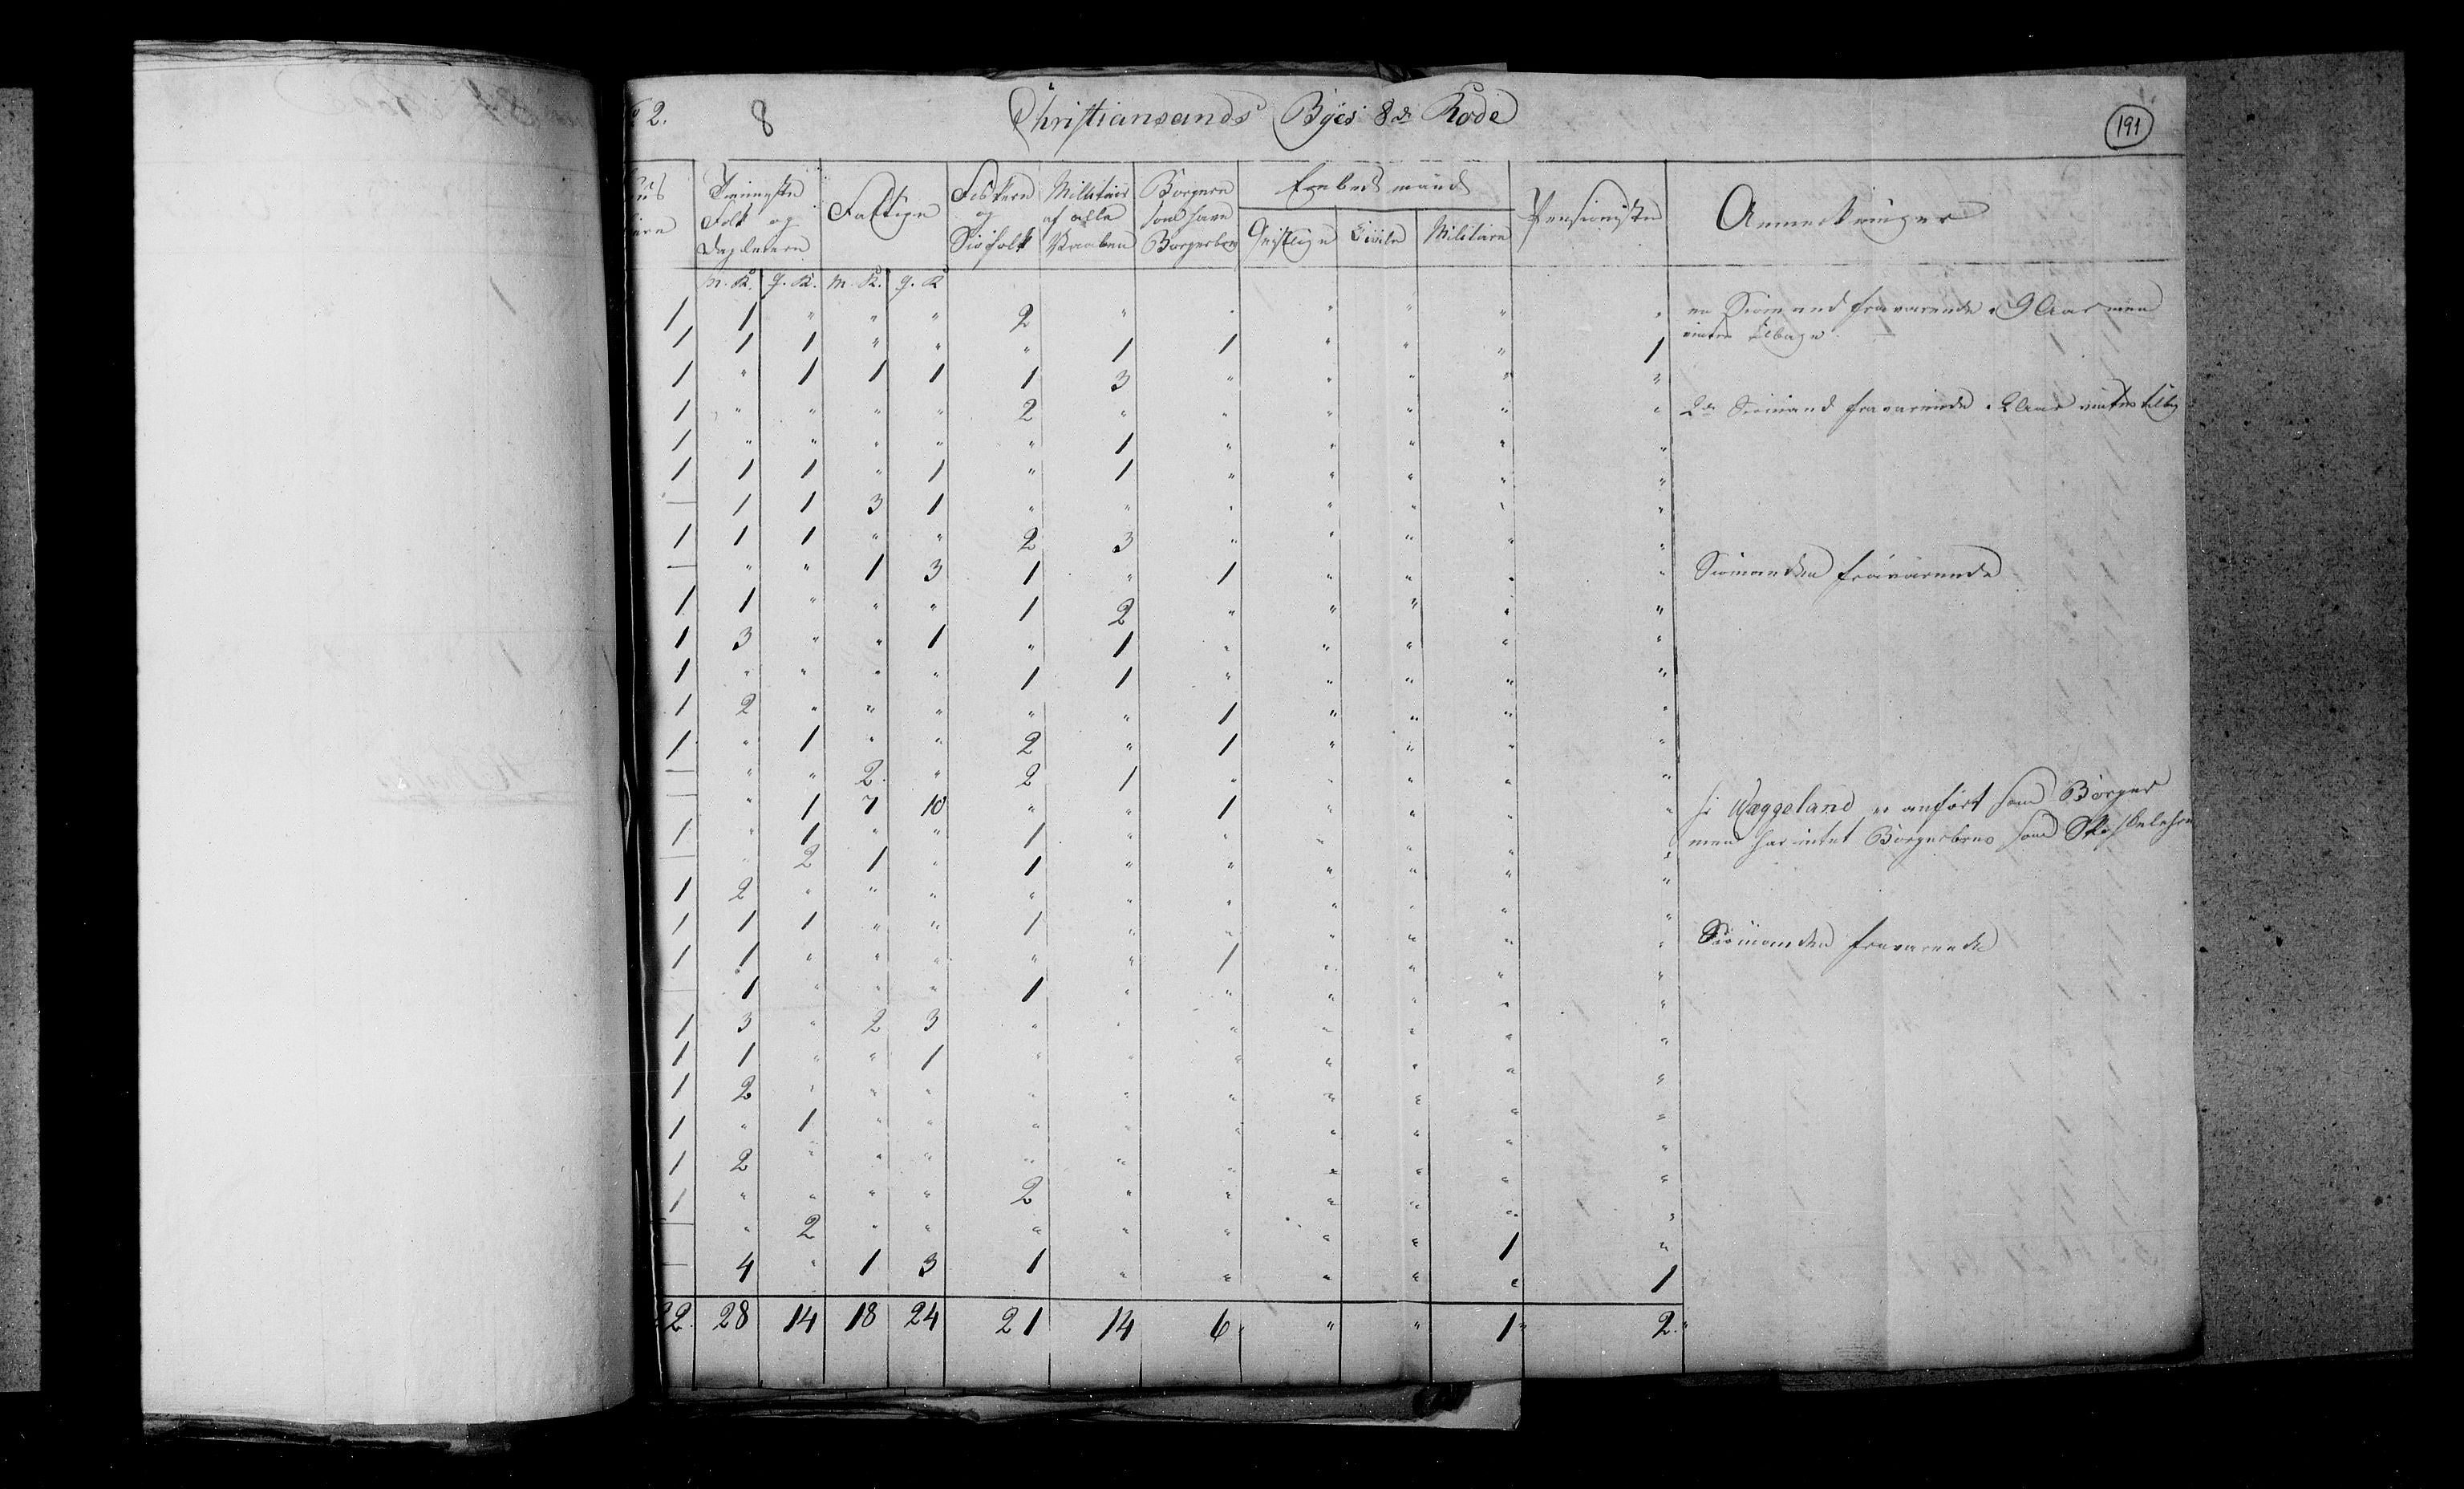 2. 8 Christiansands Byes 8de Rode 191
Tieneste Faltige Fiskere Militair Borgere Embedsmænd Pensionister Anmerkninger
Folk og og af alle som have
Daglejere Siøfolk Vaaben Borgerbrev Geistlige Civile Militaire
m. K. q. K. m. K. q. K
1 1 " " " 2 " " " " " " en Siömand fraværende 9 Aar men
1 1 1 " " " 1 1 " " " 1 tilbage
1 " 1 1 1 1 3 " " " " "
1 " " " " 2 " " " " " " 2de Siömænd fraværende
1 " " " " " 1 " " " " "
1 1 1 " 1 " 1 " " " " "
— 1 1 3 1 " " " " " " "
1 1 1 " " 2 3 " " " " "
— " " 1 3 1 " 1 " " " " Siömanden fraværende
1 1 " " " 1 2 " " " " "
1 3 " " 1 " 1 " " " " "
1 " " " " 1 1 " " " " "
1 2 " " " " " 1 " " " "
1 " 1 " " 2 " 1 " " " "
— " " 2 " 2 1 " " " " "
— " 1 7 10 " " 1 " " " " Hr Wæggeland er anført som Borger
1 " 1 " " 1 " " " " " " men har intet Borgerbrev som
— " 2 1 " 1 " " " " " "
1 2 " " " " " " " " " "
1 1 1 " " 1 " " " " " " Siömanden fraværende
1 1 " " " " " 1 " " " "
— 1 " " " 1 " " " " " "
1 3 " 2 3 " " " " " " "
1 1 " " 1 " " " " " " "
1 2 " " " " " " " " " "
1 " 1 " " " " " " " " "
1 2 " " " " " " " " " "
1 " " " " 2 " " " " " "
— " 2 " " " " " " " 1 "
— 4 " 1 3 1 " " " " " 1
22 28 14 18 24 21 14 6 " " 1 2